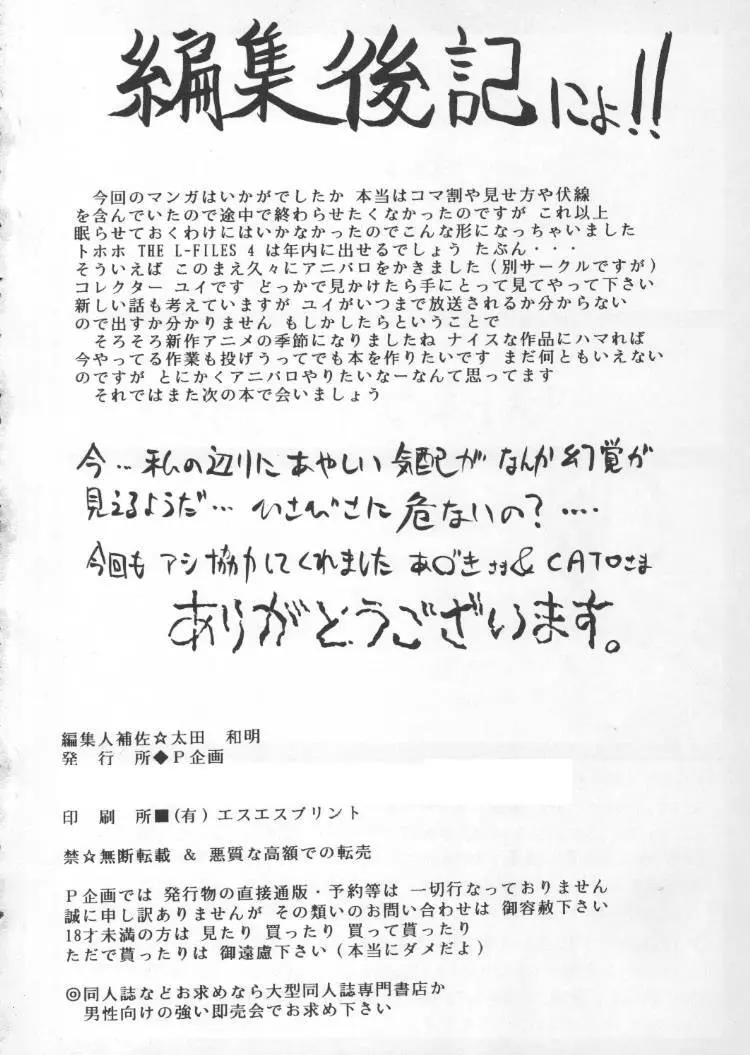 編集後記にょ!!
今回のマンガはいかがでしたか 本当はコマ割や見せ方や伏線
を含んでいたので途中で終わらせたくなかったのですが これ以上
眠らせておくわけにはいかなかったのでこんな形になっちゃいました
トホホ THE L-FILES 4 は年内に出せるでしょう たぶん・・・
そういえば このまえ久々にアニパロをかきました(別サークルですが)
コレクター ユイです どっかで見かけたら手にとって見てやって下さい
新しい話も考えていますが ユイがいつまで放送されるか分からない
ので出すか分かりません もしかしたらということで
そろそろ新作アニメの季節になりましたね ナイスな作品にハマれば
今やってる作業も投げうってでも本を作りたいです まだ何ともいえない
のですが とにかくアニパロやりたいなーなんて思ってます
それではまた次の本で会いましょう
今… 私の辺りにあやしい気配が なんか幻覚が
見えるようだ… いさびさに 危ないの?‥‥
今回も アシ協力してくれました あづきさま& CATOさま
ありがとうございます。
編集人補佐☆太田 和明
発 行 所◆P企画
印 刷 所■(有)エスエスプリント
禁☆無断転載 & 悪質な高額での転売
P企画では 発行物の直接通販・予約等は 一切行なっておりません
誠に申し訳ありませんが その類いのお問い合わせは 御容赦下さい
18才未満の方は 見たり 買ったり 買って貰ったり
ただで貰ったりは 御遠慮下さい(本当にダメだよ)
◎同人誌などお求めなら大型同人誌専門書店か
男性向けの強い即売会でお求め下さい